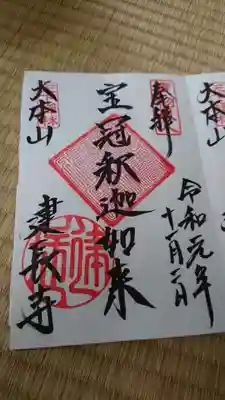 奉拝
令和元年
十一月二日
宝冠釈迦如来
大本山
建長寺
大本山